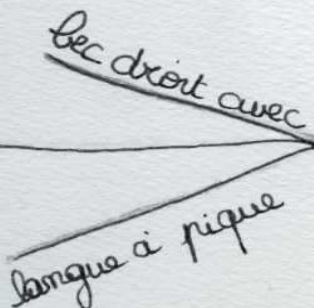 bec droit avec
langue à pique